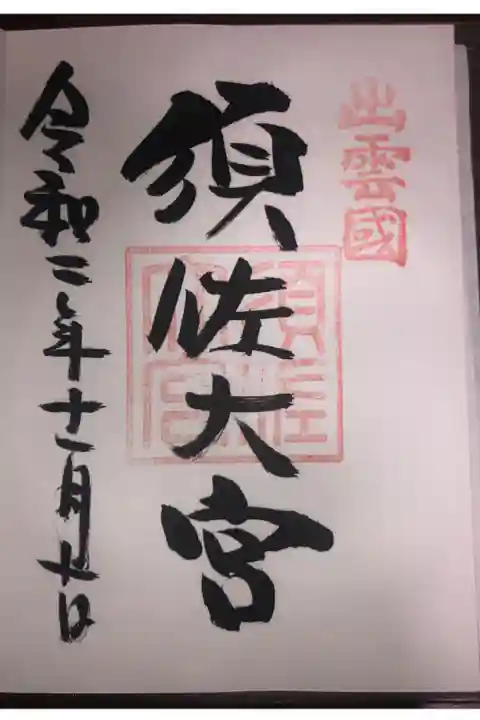 出雲國
須佐大宮
令和二年十一月十日